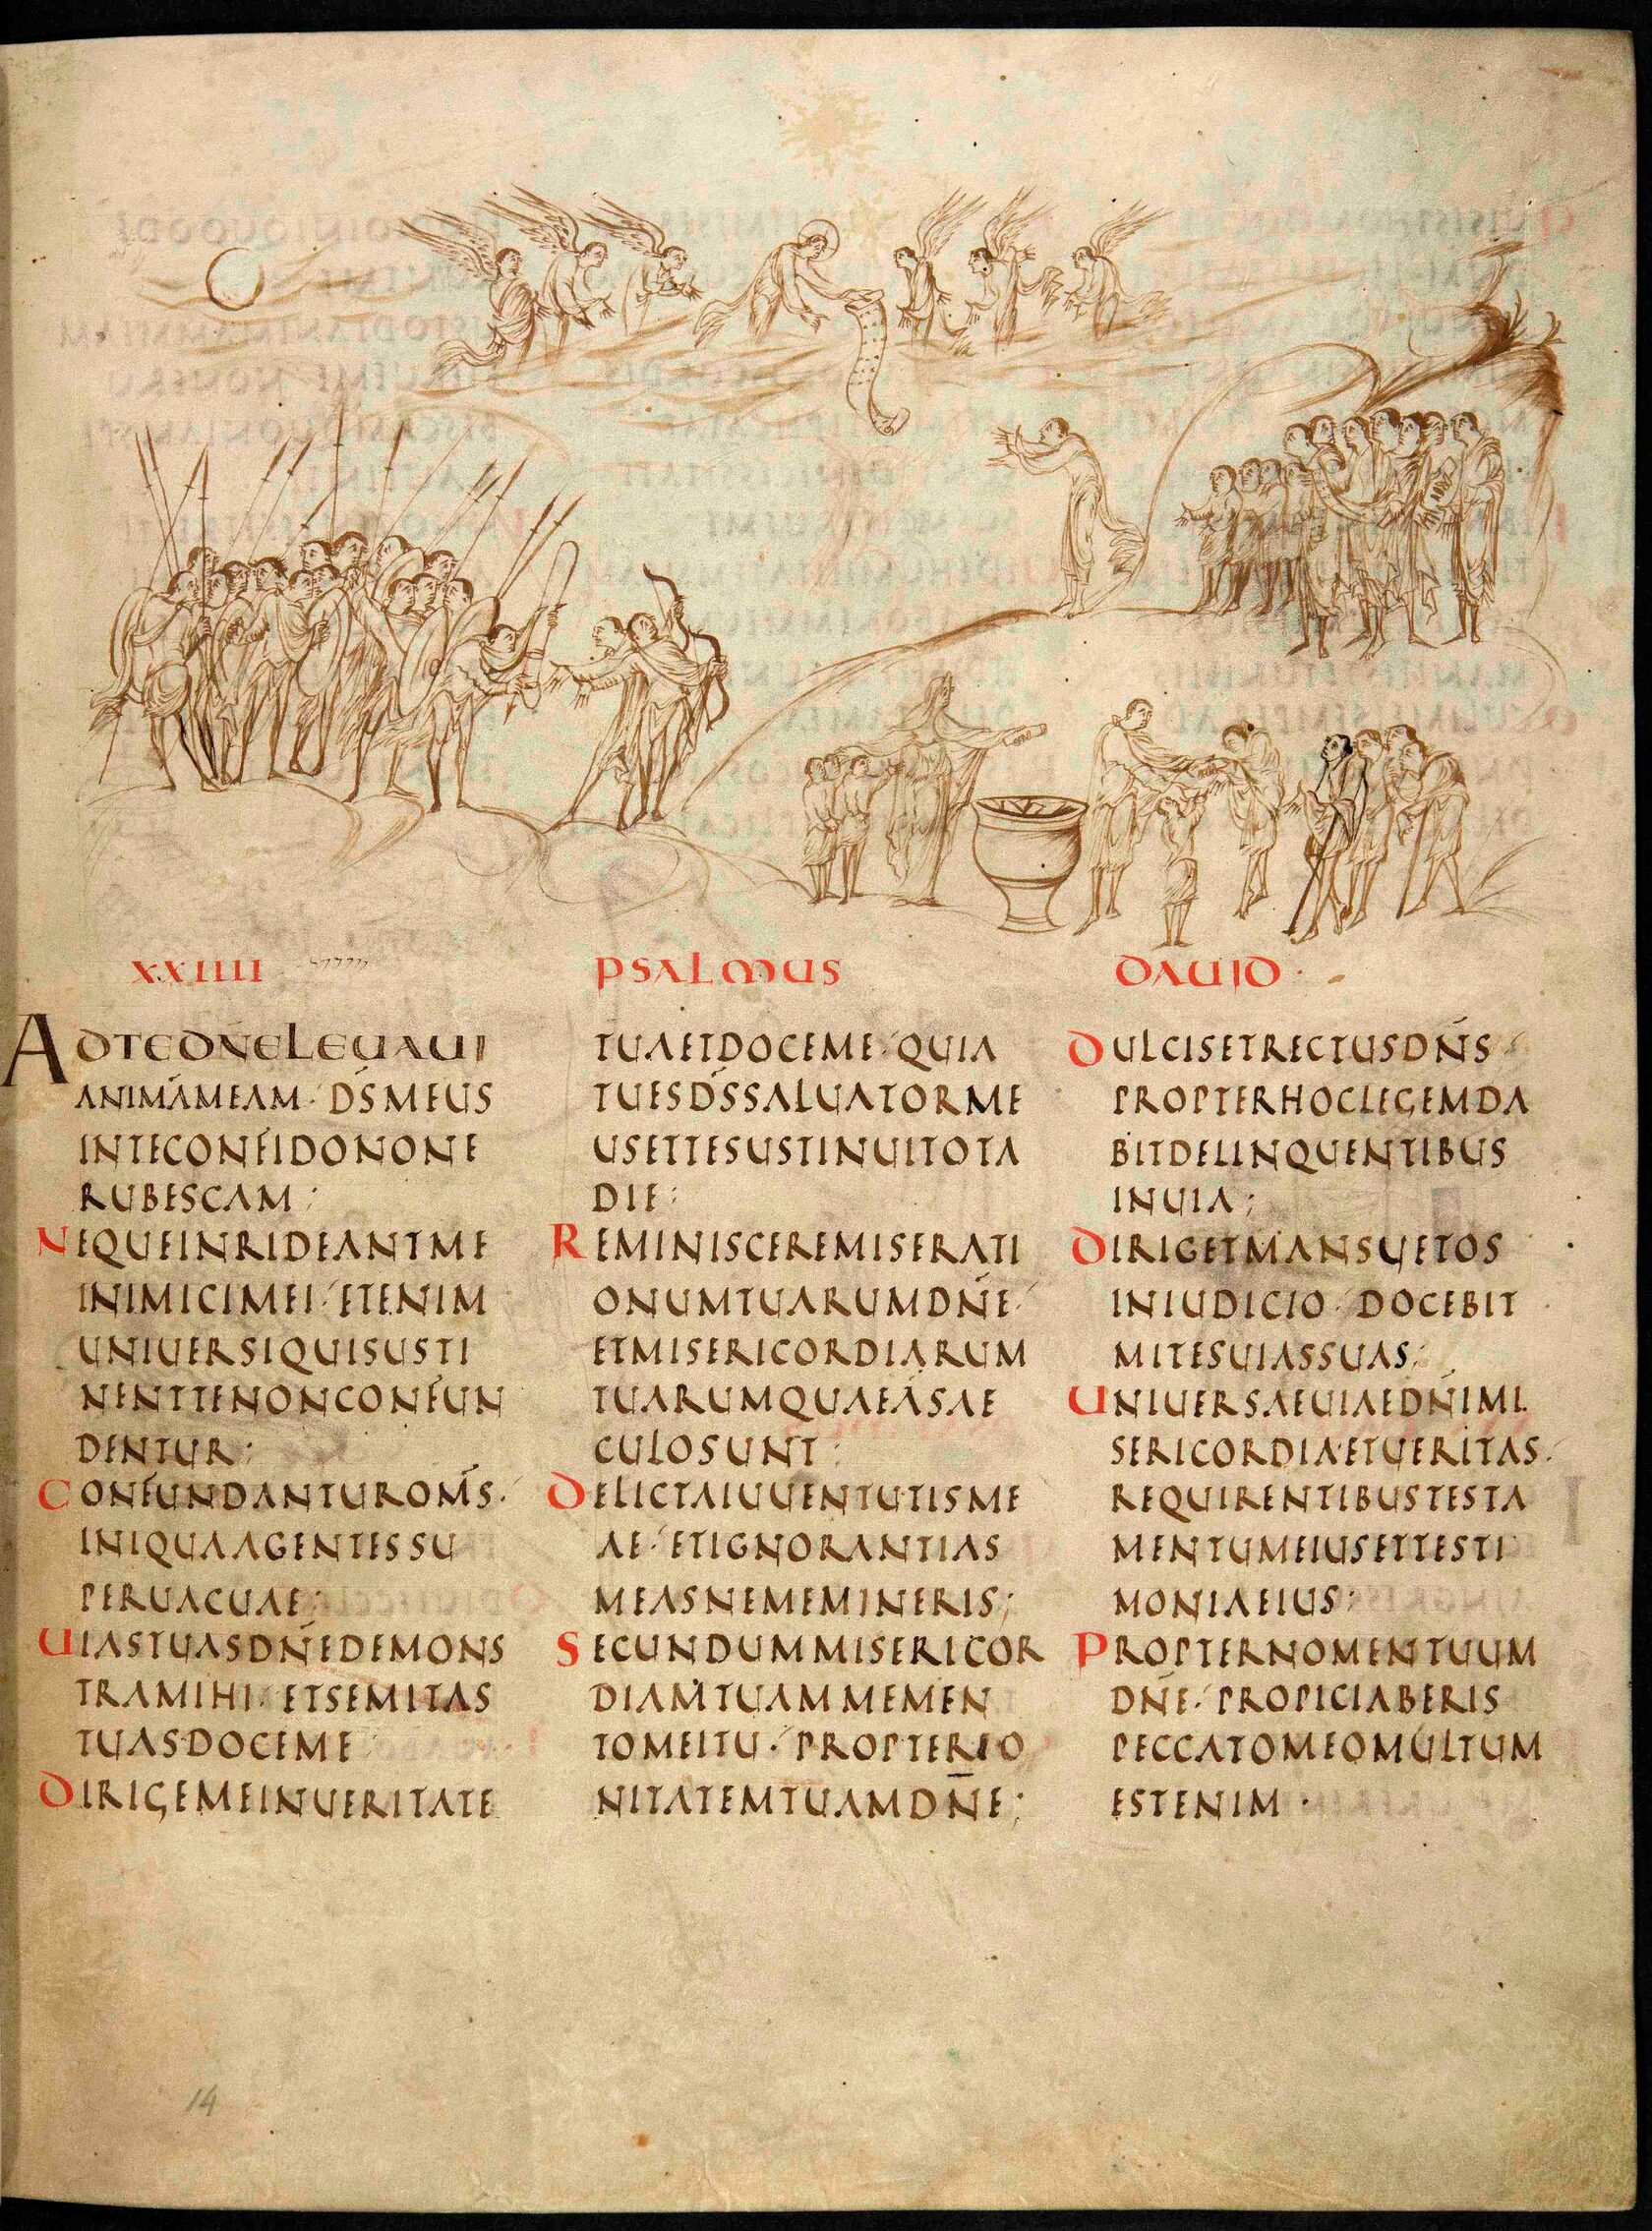 XXIIII PSALMUS DAUID
ADTEDN̄ELEUAUI
ANIMĀMEAM· D̄SMEUS
INTECONFIDONONE
RUBESCAM;
NEQUEINRIDEANTME
INIMICIMEI· ETENIM
UNIUERSIQUISUSTI
NENTTENONCONFUN
DENTUR;
CONFUNDANTUROM̄S·
INIQUAAGENTESSU
PERUACUAE;
UIASTUASDN̄EDEMONS
TRAMIHI· ETSEMITAS
TUASDOCEME
DIRIGEMEINUERITATE
TUAETDOCEME· QUIA
TUESD̄SSALUATORME
USETTESUSTINUITOTA
DIE;
REMINISCEREMISERATI
ONUMTUARUMDN̄E·
ETMISERICORDIARUM
TUARUMQUAEĀSAE
CULOSUNT;
DELICTAIUUENTUTISME
AE· ETIGNORANTIAS
MEASNEMEMINERIS;
SECUNDUMMISERICOR
DIAMTUAMMEMEN
TOMEITU· PROPTERIO
NITATEMTUAMDN̄E;
DULCISETRECTUSDN̄S
PROPTERHOCLEGEMDA
BITDELINQUENTIBUS
INUIA;
DIRIGETMANSUETOS
INIUDICIO· DOCEBIT
MITESUIASSUAS;
UNIUERSAEUIAEDN̄IMI
SERICORDIAETUERITAS·
REQUIRENTIBUSTESTA
MENTUMEIUSETTESTI
MONIAEIUS;
PROPTERNOMENTUUM
DN̄E· PROPICIABERIS
PECCATOMEOMULTUM
ESTENIM·
14